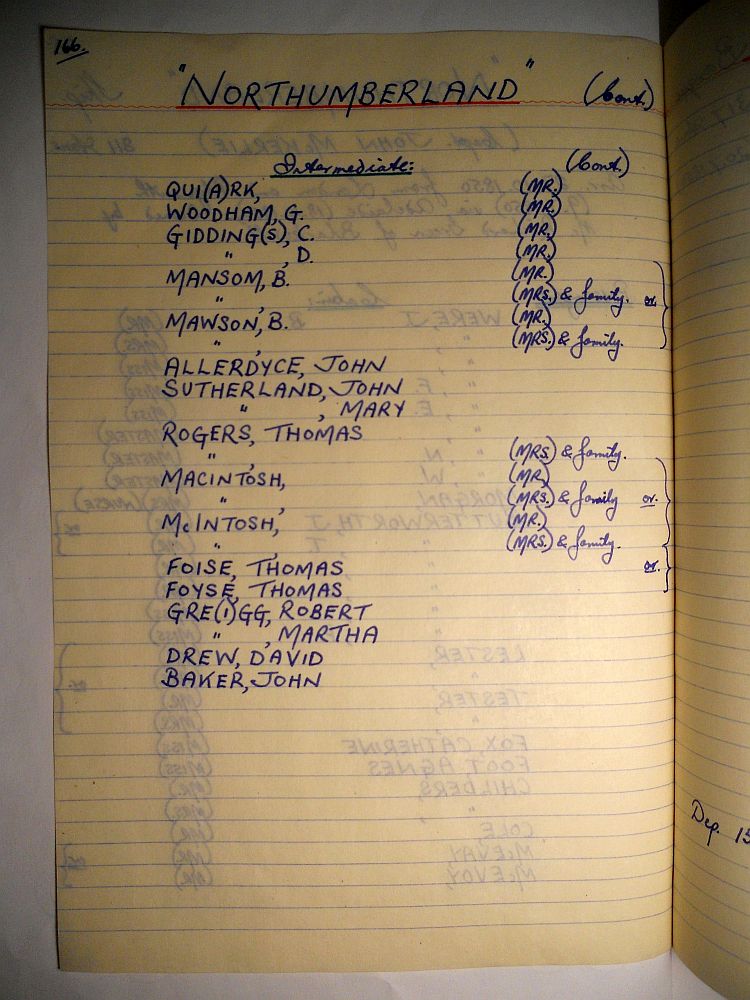 166.
"NORTHUMBERLAND" (Cont.)
Intermediate: (Cont.)
QUI(A)RK, (MR.)
WOODHAM, G. (MR.)
GIDDING(S), C. (MR.)
" , D. (MR.)
MANSOM, B. (MR.)
" , (MRS.) & family. or.
MAWSON, B. (MR.)
" , (MRS.) & family.
ALLERDYCE, JOHN
SUTHERLAND, JOHN
" , MARY
ROGERS, THOMAS
" , (MRS.) & family.
MACINTOSH, (MR.)
" , (MRS.) & family or.
McINTOSH, (MR.)
" , (MRS.) & family.
FOISE, THOMAS or.
FOYSE, THOMAS
GRE(I)GG, ROBERT
" , MARTHA
DREW, DAVID
BAKER, JOHN
Dep. 15